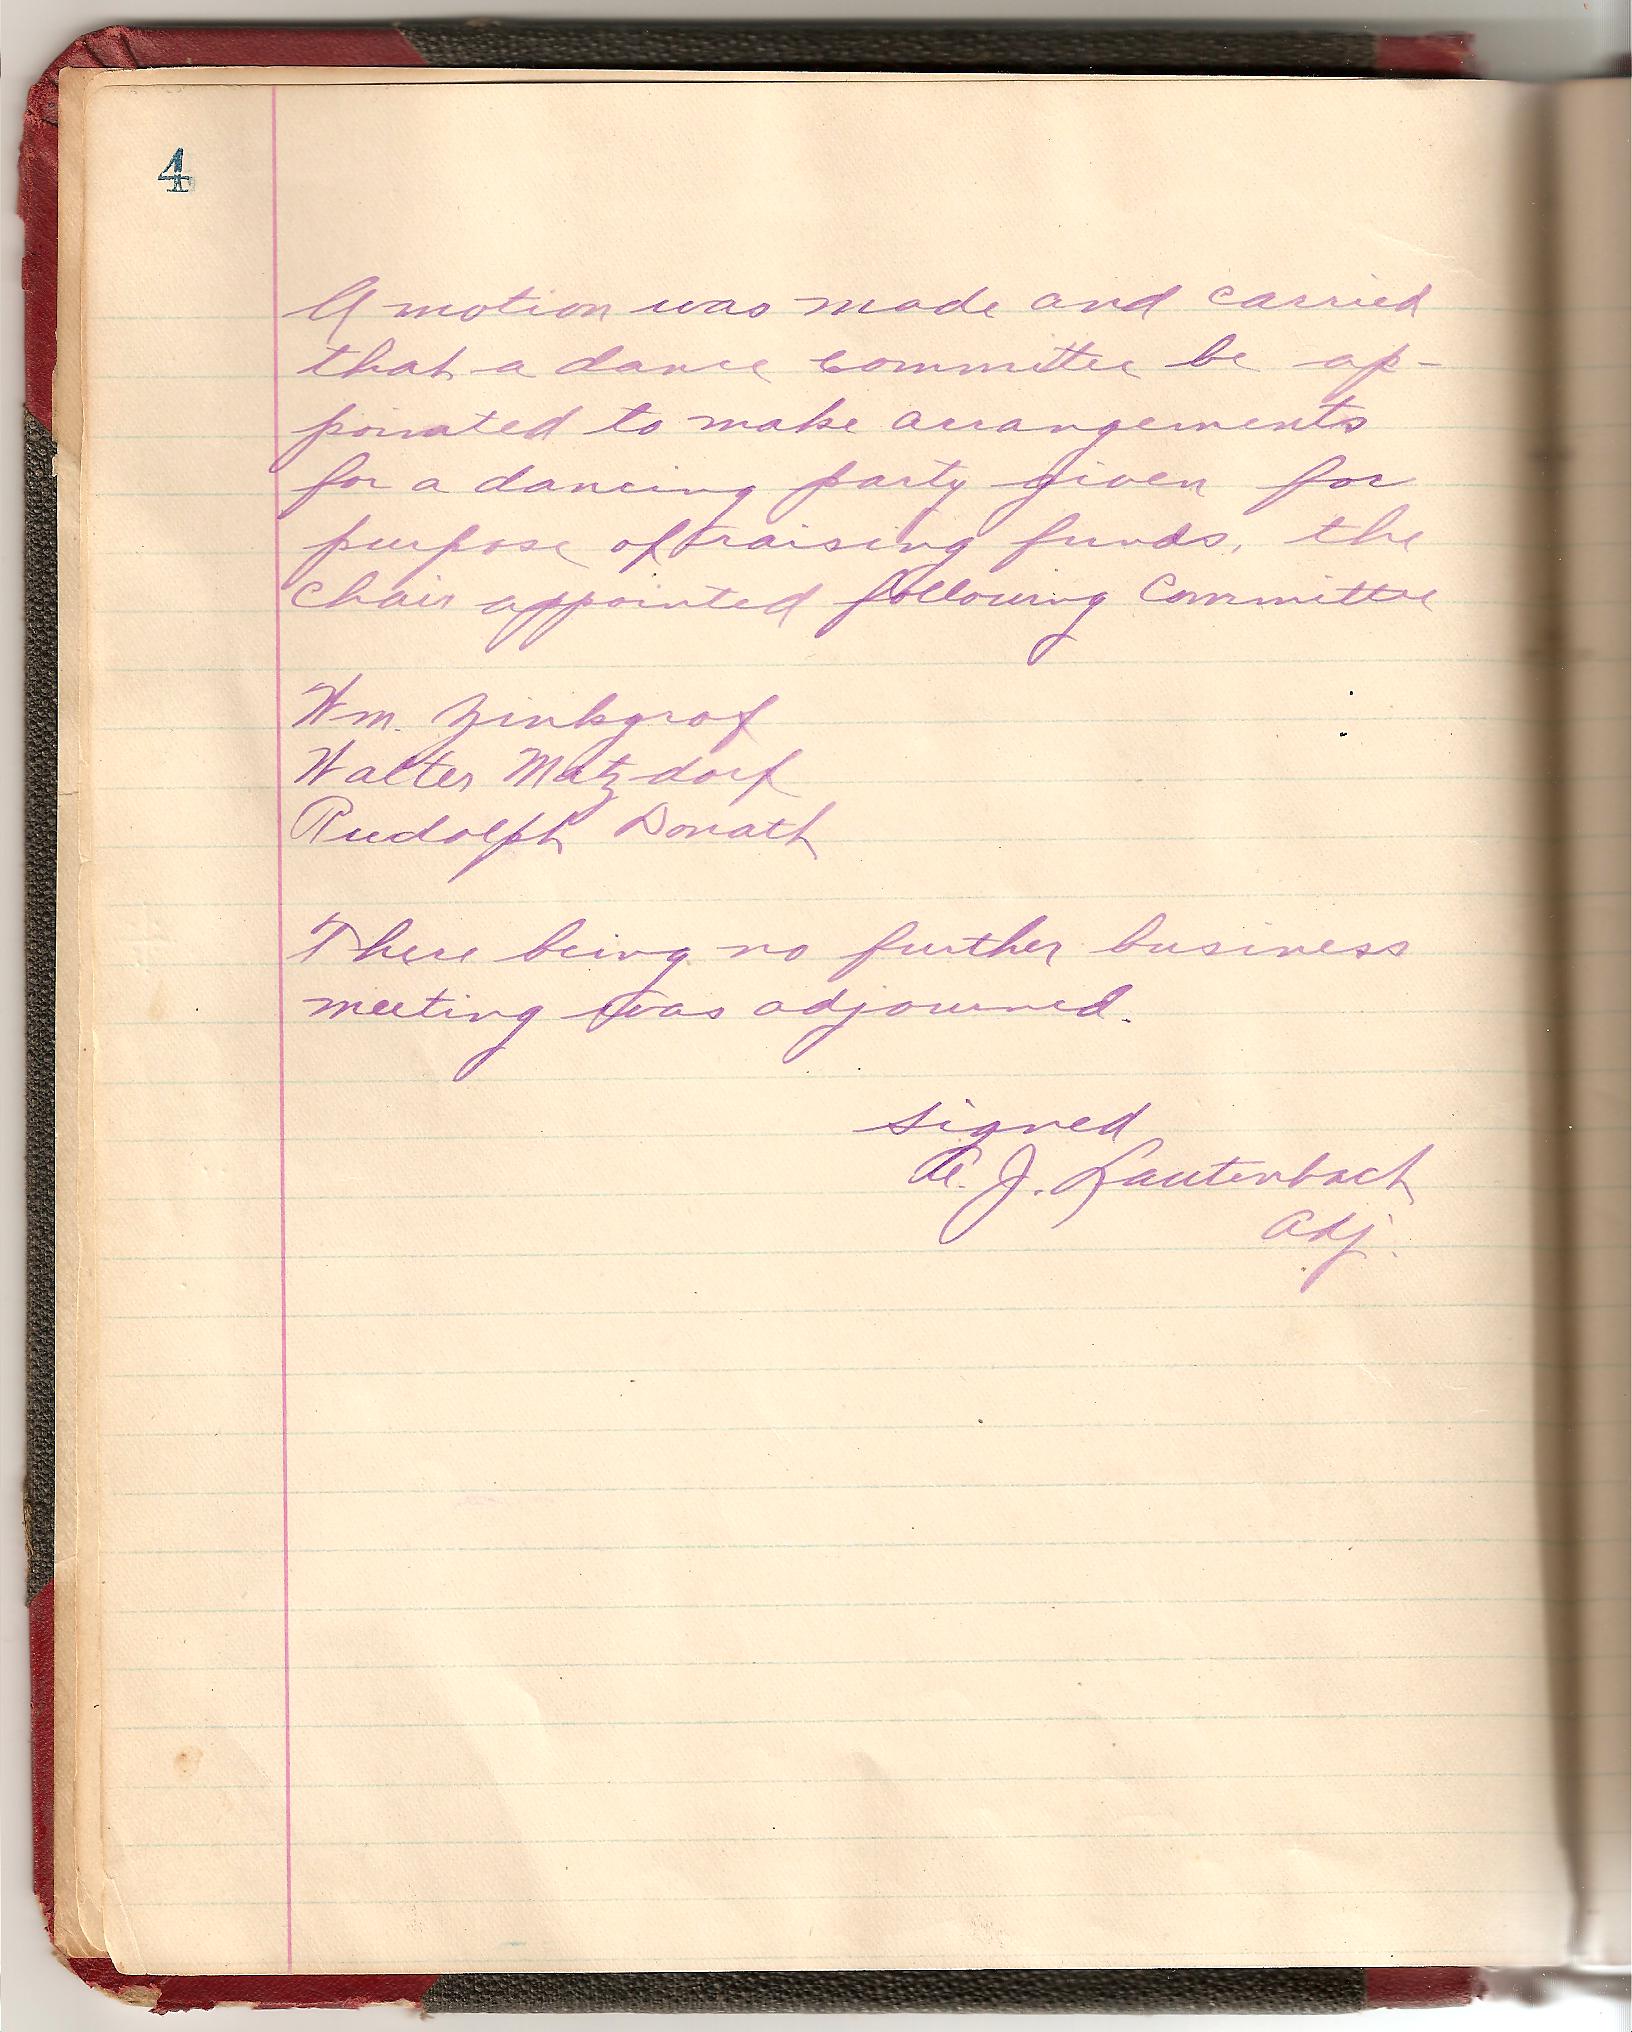 4
A motion was made and carried
that a dance committee be ap-
pointed to make arrangements
for a dancing party given for
purpose of raising funds, the
chair appointed following Committee
Wm. Zinkgraf
Walter Matzdorf
Rudolph Donath
There being no further business
meeting was adjourned.
signed
J. Lautenbach
Adj.